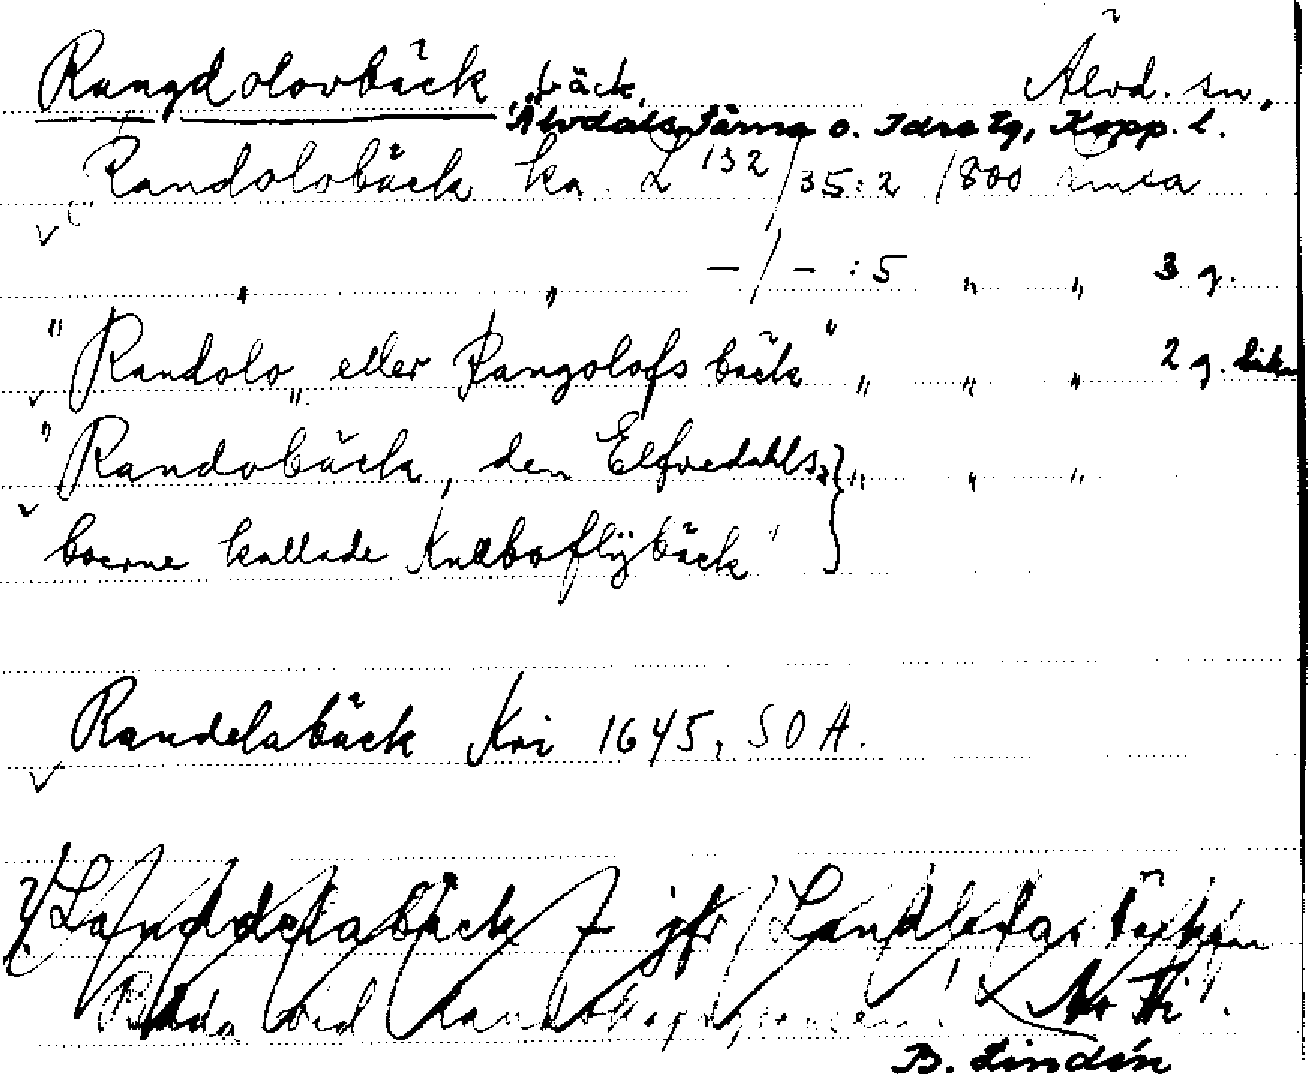 Rangdolovbäck, bäck, Älvd. sn,
Älvdals, Särna o. Idre tg, Kopp. l.
Randolobäck ka. L 132/35:2 /800
" " — / — : 5 " " 3 g.
"Randolo" eller Rangolofs bäck" " " " 2 g.
"Randobäck, den Elfvedahls- " " "
boerne kallade Knabboflÿbäck"
Randelabäck Kri 1645, SOA.
Landdelabäck 7 jfr Landledas
Båda vid
B. Lindén